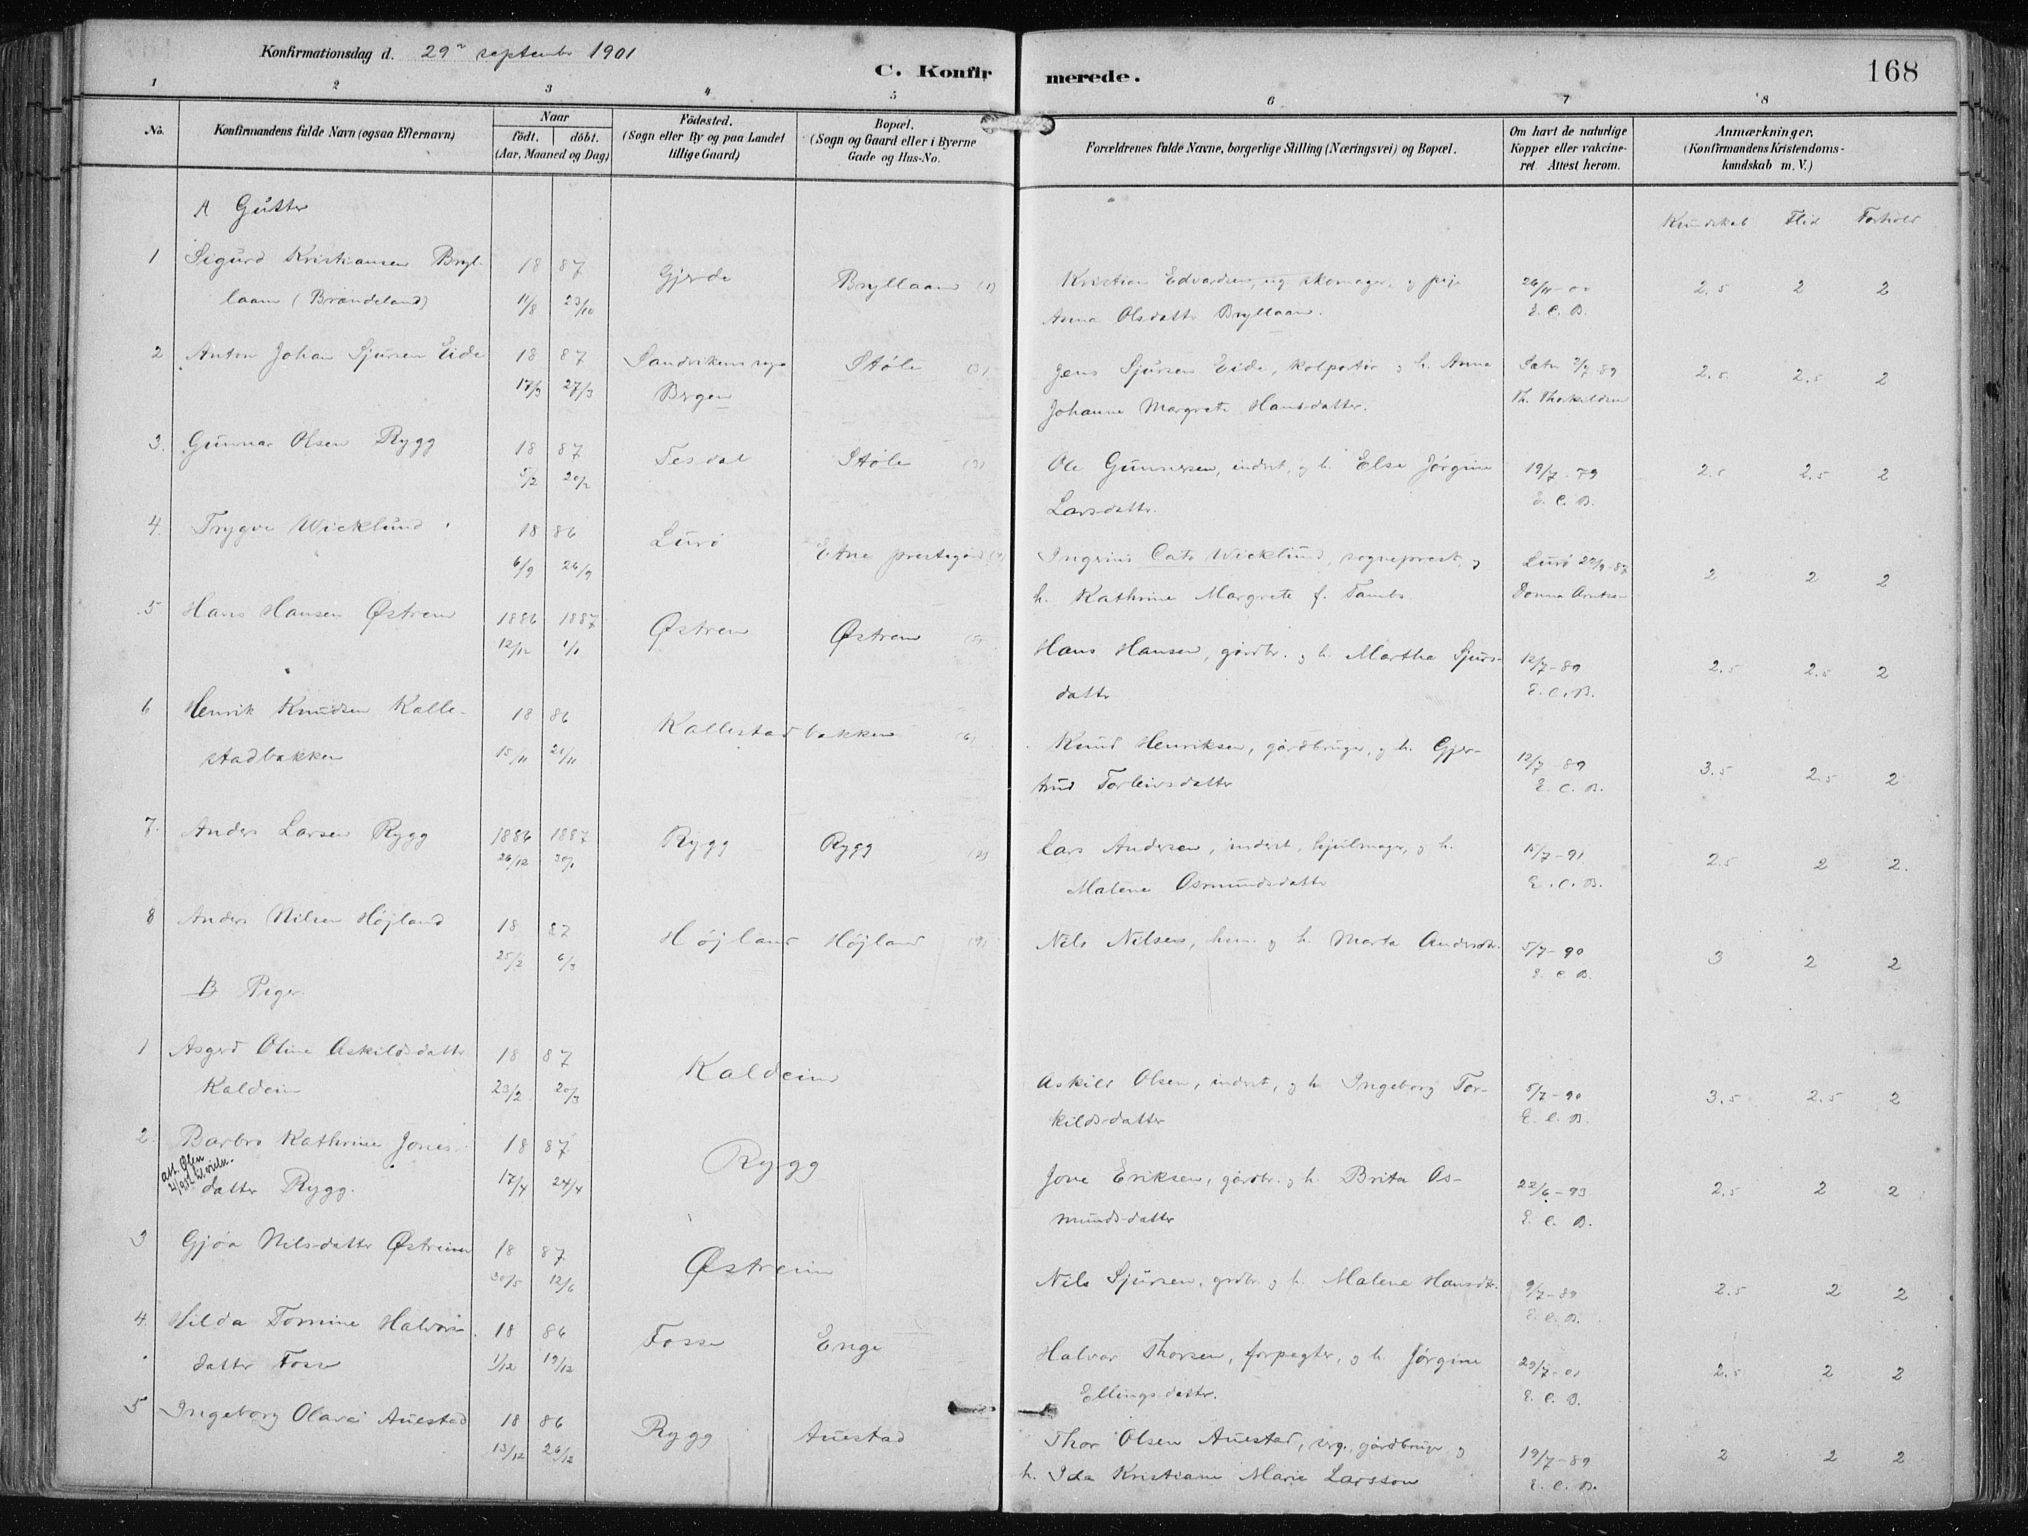 Konfirmationsdag d. 29 september 1901
C. Konfirmerede.
168
1 2 3 4 5 6 7 8
No. Konfirmandens fulde Navn (ogsaa Efternavn) Naar født. døbt. (Aar, Maaned og Dag) Fødested. (Sogn eller By og paa Landet tillige Gaard) Bopæl. (Sogn og Gaard eller i Byerne Gade og Hus-No. Forældrenes fulde Navne, borgerlige Stilling (Næringsvei) og Bopæl. Om havt de naturlige Kopper eller vakcineret. Attest herom. Anmærkninger. (Konfirmandens Kristendomskundskab m. V.)
A Gutter Kundskab Flid Forhold
1 Sigurd Kristiansen Bryl- 18 87 Gjerde Bryllaan (1) Kristian Edvardsen, ug skomager, og pige 26/11-00 2.5 2 2
laan (Brandeland) 11/8 23/10 Anna Olsdatter Bryllaan. E. C. B.
2 Anton Johan Sjursen Eide 18 87 Sandvikens sogn Støle (3) Jens Sjursen Eide, kolportør og h. Anna 2.5 2.5 2
17/3 27/3 Bergen Johanne Margrete Hansdatter. Th. Thorkildsen
3. Gunnar Olsen Rygg 18 87 Tesdal Støle (3) Ole Gunnersen, inderst, og h. Else Jørgine 19/7-79 2.5 2.5 2
5/2 20/2 Larsdatter. E. C. B.
4. Trygve Wicklund 18 86 Lurø Etne prestegård Ingenius Cato Wicklund, sogneprest, og Lurø 2 2 2
6/9 26/9 h. Kathrine Margrete f. Tambs. Donna
5 Hans Hansen Østrem 1886 1887 Østrem Østrem (5) Hans Hansen, gårdbr. og h. Martha Sjurs- 12/7-89 2.5 2.5 2
12/12 1/1 datter E. C. B.
6 Henrik Knudsen Kalle- 18 86 Kallestadbakken (6) Knud Henriksen, gårdbruger, og h. Gjer- 12/7-89 3.5 2.5 2
stadbakken 15/11 21/11 trud Torleivsdatter E. C. B.
7. Anders Larsen Rygg 1886 1887 Rygg Rygg (2) Lars Andersen, inderst, hjulmager, og h. 15/7-91 2.5 2 2.
26/12 30/1 Malene Osmundsdatter E. C. B.
8 Anders Nilsen Højland 18 87 Højland Højland Nils Nilsen, hsm. og h. Marta Andersdtr. 5/7-90 3 2 2
25/2 6/3 E. C. B.
B Piger.
1 Asgerd Oline Askildsdatter 18 87 Kaldeim Askild Olsen, inderst, og h. Ingeborg Tor- 5/7-90 3.5 2.5 2
Kaldeim 23/2 20/3 kildsdatter E. C. B.
2. Barbro Kathrine Jones- 18 87 Rygg Jone Eriksen, gårdbr. og h. Brita Os- 22/6-93 2.5 2 2
att. Ølen
datter Rygg. 17/4 24/4 mundsdatter E. C. B.
3 Gjøa Nilsdatter Østreim 18 87 Østreim Nils Sjursen, grdbr. og h. Malene Hansdtr. 9/7-89 2.5 2 2
20/5 12/6 E. C. B.
4. Hilda Tomine Halvors- 18 86 Fosse Enge Halvor Thorsen, forpagter, og h. Jørgine 29/7-01 2.5 2 2
datter Fosse 1/12 19/12 Ellingsdatter. E. C. B.
5 Ingeborg Olava Auestad 18 86 Rygg Auestad Thor Olsen Auestad, gårdbruger og 19/7-89 2 2 2
13/12 26/12 h. Ida Kristiane Marie Larsson E. C. B.